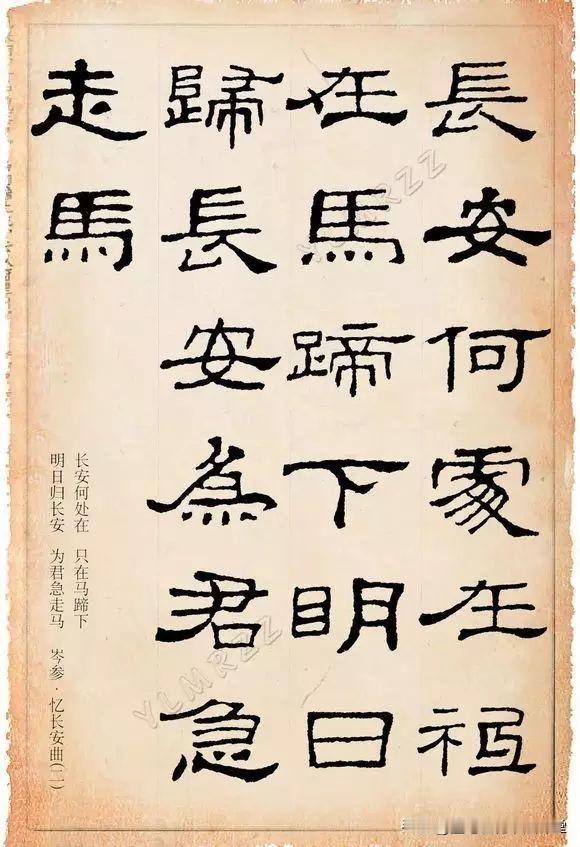 長安何處在祇
在馬蹄下明日
歸長安為君急
走馬
长安何处在 只在马蹄下
明日归长安 为君急走马 岑参·忆长安曲(二)
YLMRZZ
YLMRZZ